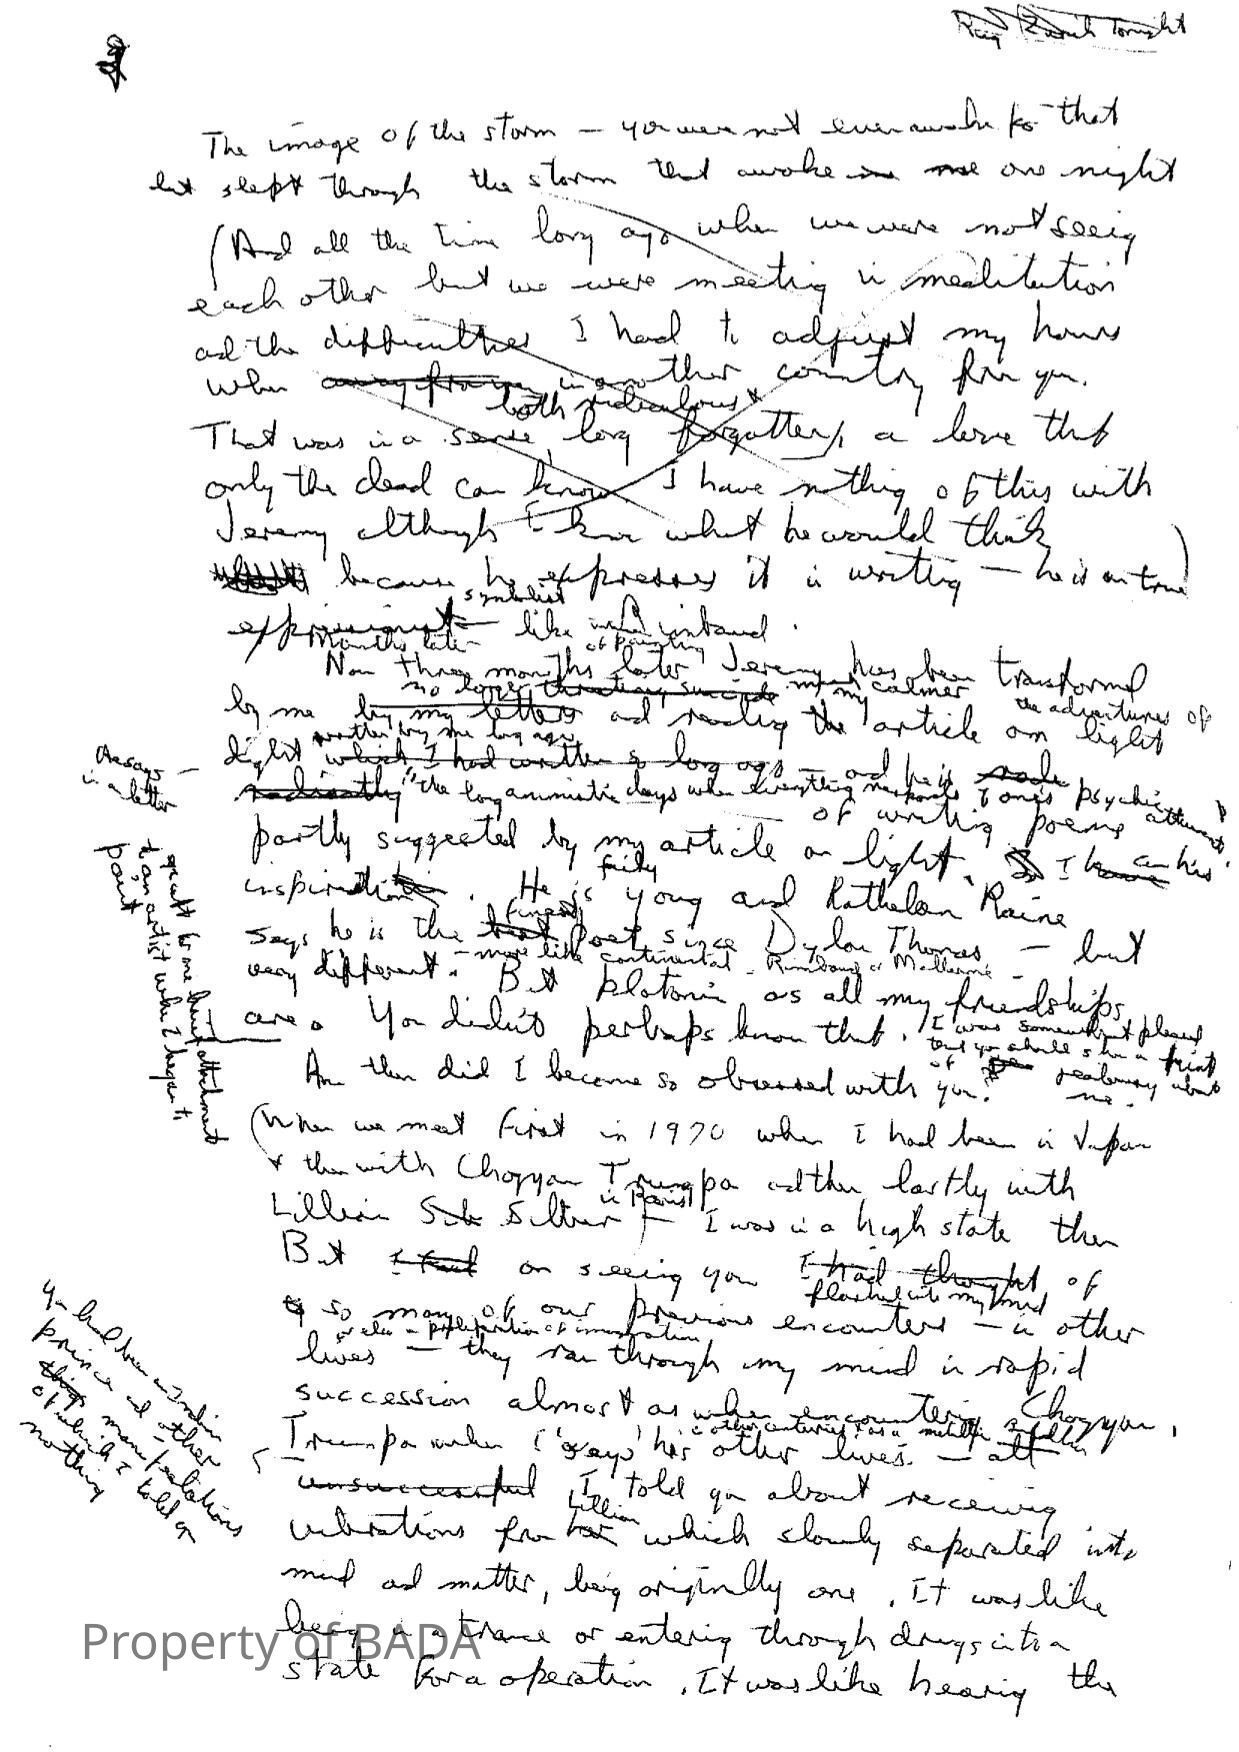 The image of the storm – you were not even awake for that
but slept through the storm that awoke me one night
(And all the time long ago when we were not seeig
each other but we were meeting in meditation
ad the difficulties I had to adjust my hours
when in another country from you.
both ridiculous &
That was in a sense, long forgotten, a love that
only the dead can know I have nothing of this with
Jeremy although I know what he would think
because he expresses it in writing – he is on true)
symbolist
expressionist like in
of painting
Months later
Now three months later Jeremy has been transformed
no longer threatening suicide much calmer
by me by my letters ad readig the article on light
the adventures of
written by me long ago
light which I had written so long ago – and he is
Aesays –
in a letter
radiantly "the long animistic days when everything responds to one's psychic attunement"
of writing poems
partly suggested by my article on light. I am his
inspiration. He is fairly young and Kathleen Raine
says he is the finest poet since Dylan Thomas – but
– more like continental – Rimbaud or Mallarmé –
very different. But platonic, as all my friendships
are. You didn't perhaps know that. I was somewhat pleased
that you should show a hint
of jealousy about
me.
to an artist when I began to
paint
How then did I become so obsessed with you?
(When we meet first in 1970 when I had been in Japan
& then with Chogyan Trungpa ad then lastly with
in Paris
Lillian Silburn) – I was in a high state then
But I had on seeing you I had thought of
flashed into my mind
so many of our previous encounters – in other
or else a proliferation of imagination
lives – they ran through my mind in rapid
You had been an Indian
prince ad other
manifestations
of which I told you
nothing
succession almost as when encountering Chogyan
Trungpa when I 'saw' his other lives. – all
unsuccessful I told you about receiving
Lillian
vibrations from her which slowly separated into
mind ad matter, being originally one. It was like
being in a trance or entering through drugs into a
state for a operation. It was like hearing the
Property of BADA